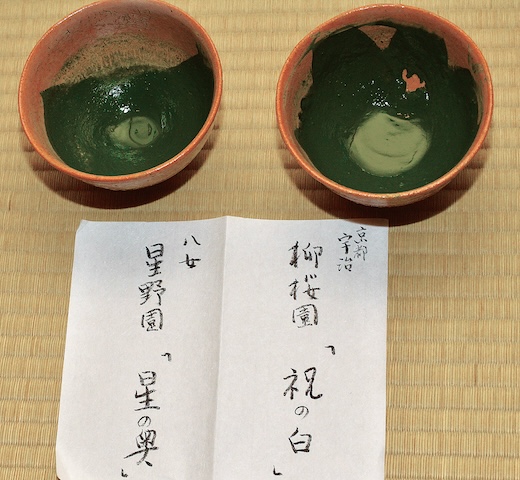 京都
宇治
柳桜園
「祝の白」
八女
星野園
「星の奥」